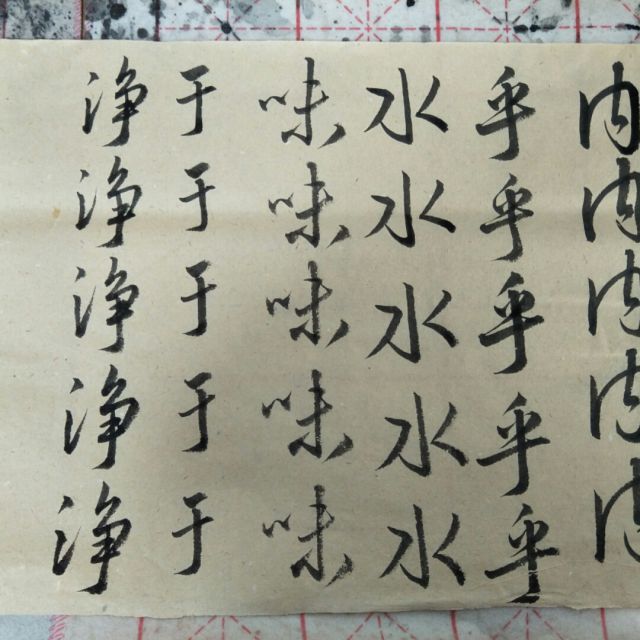 内内内内内
乎乎乎乎乎
水水水水水
味味味味味
于于于于于
净净净净净